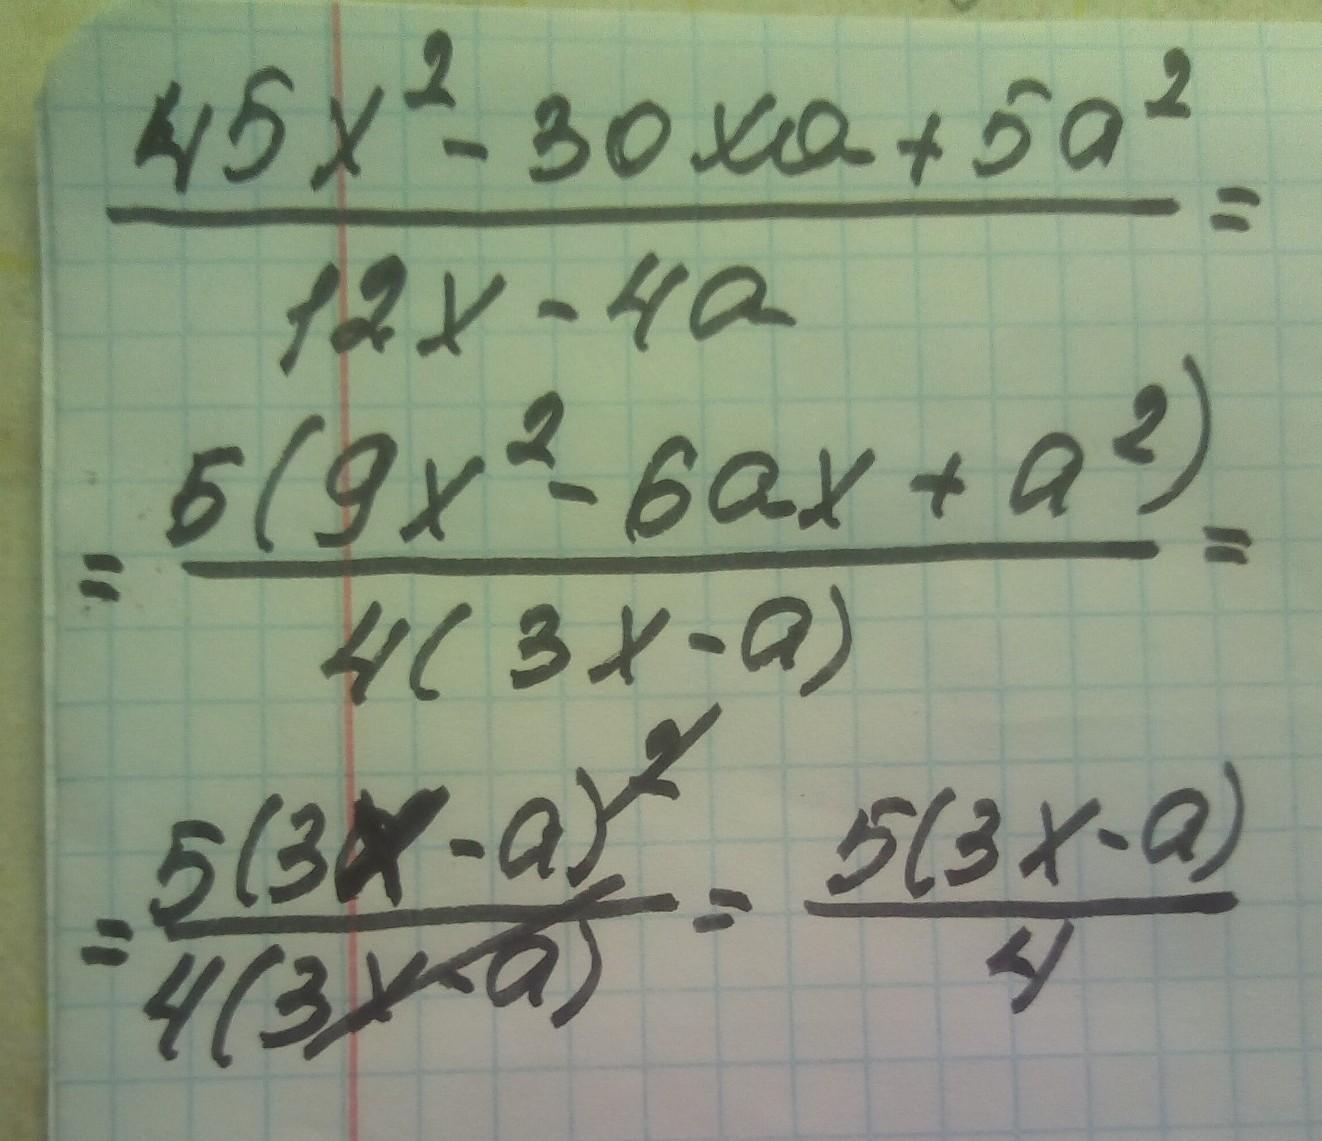 45x² - 30xa + 5a²
―――――――――― =
12x - 4a
= 5(9x² - 6ax + a²)
―――――――――― =
4(3x - a)
= 5(3x - a)² / 4(3x - a) = 5(3x - a) / 4